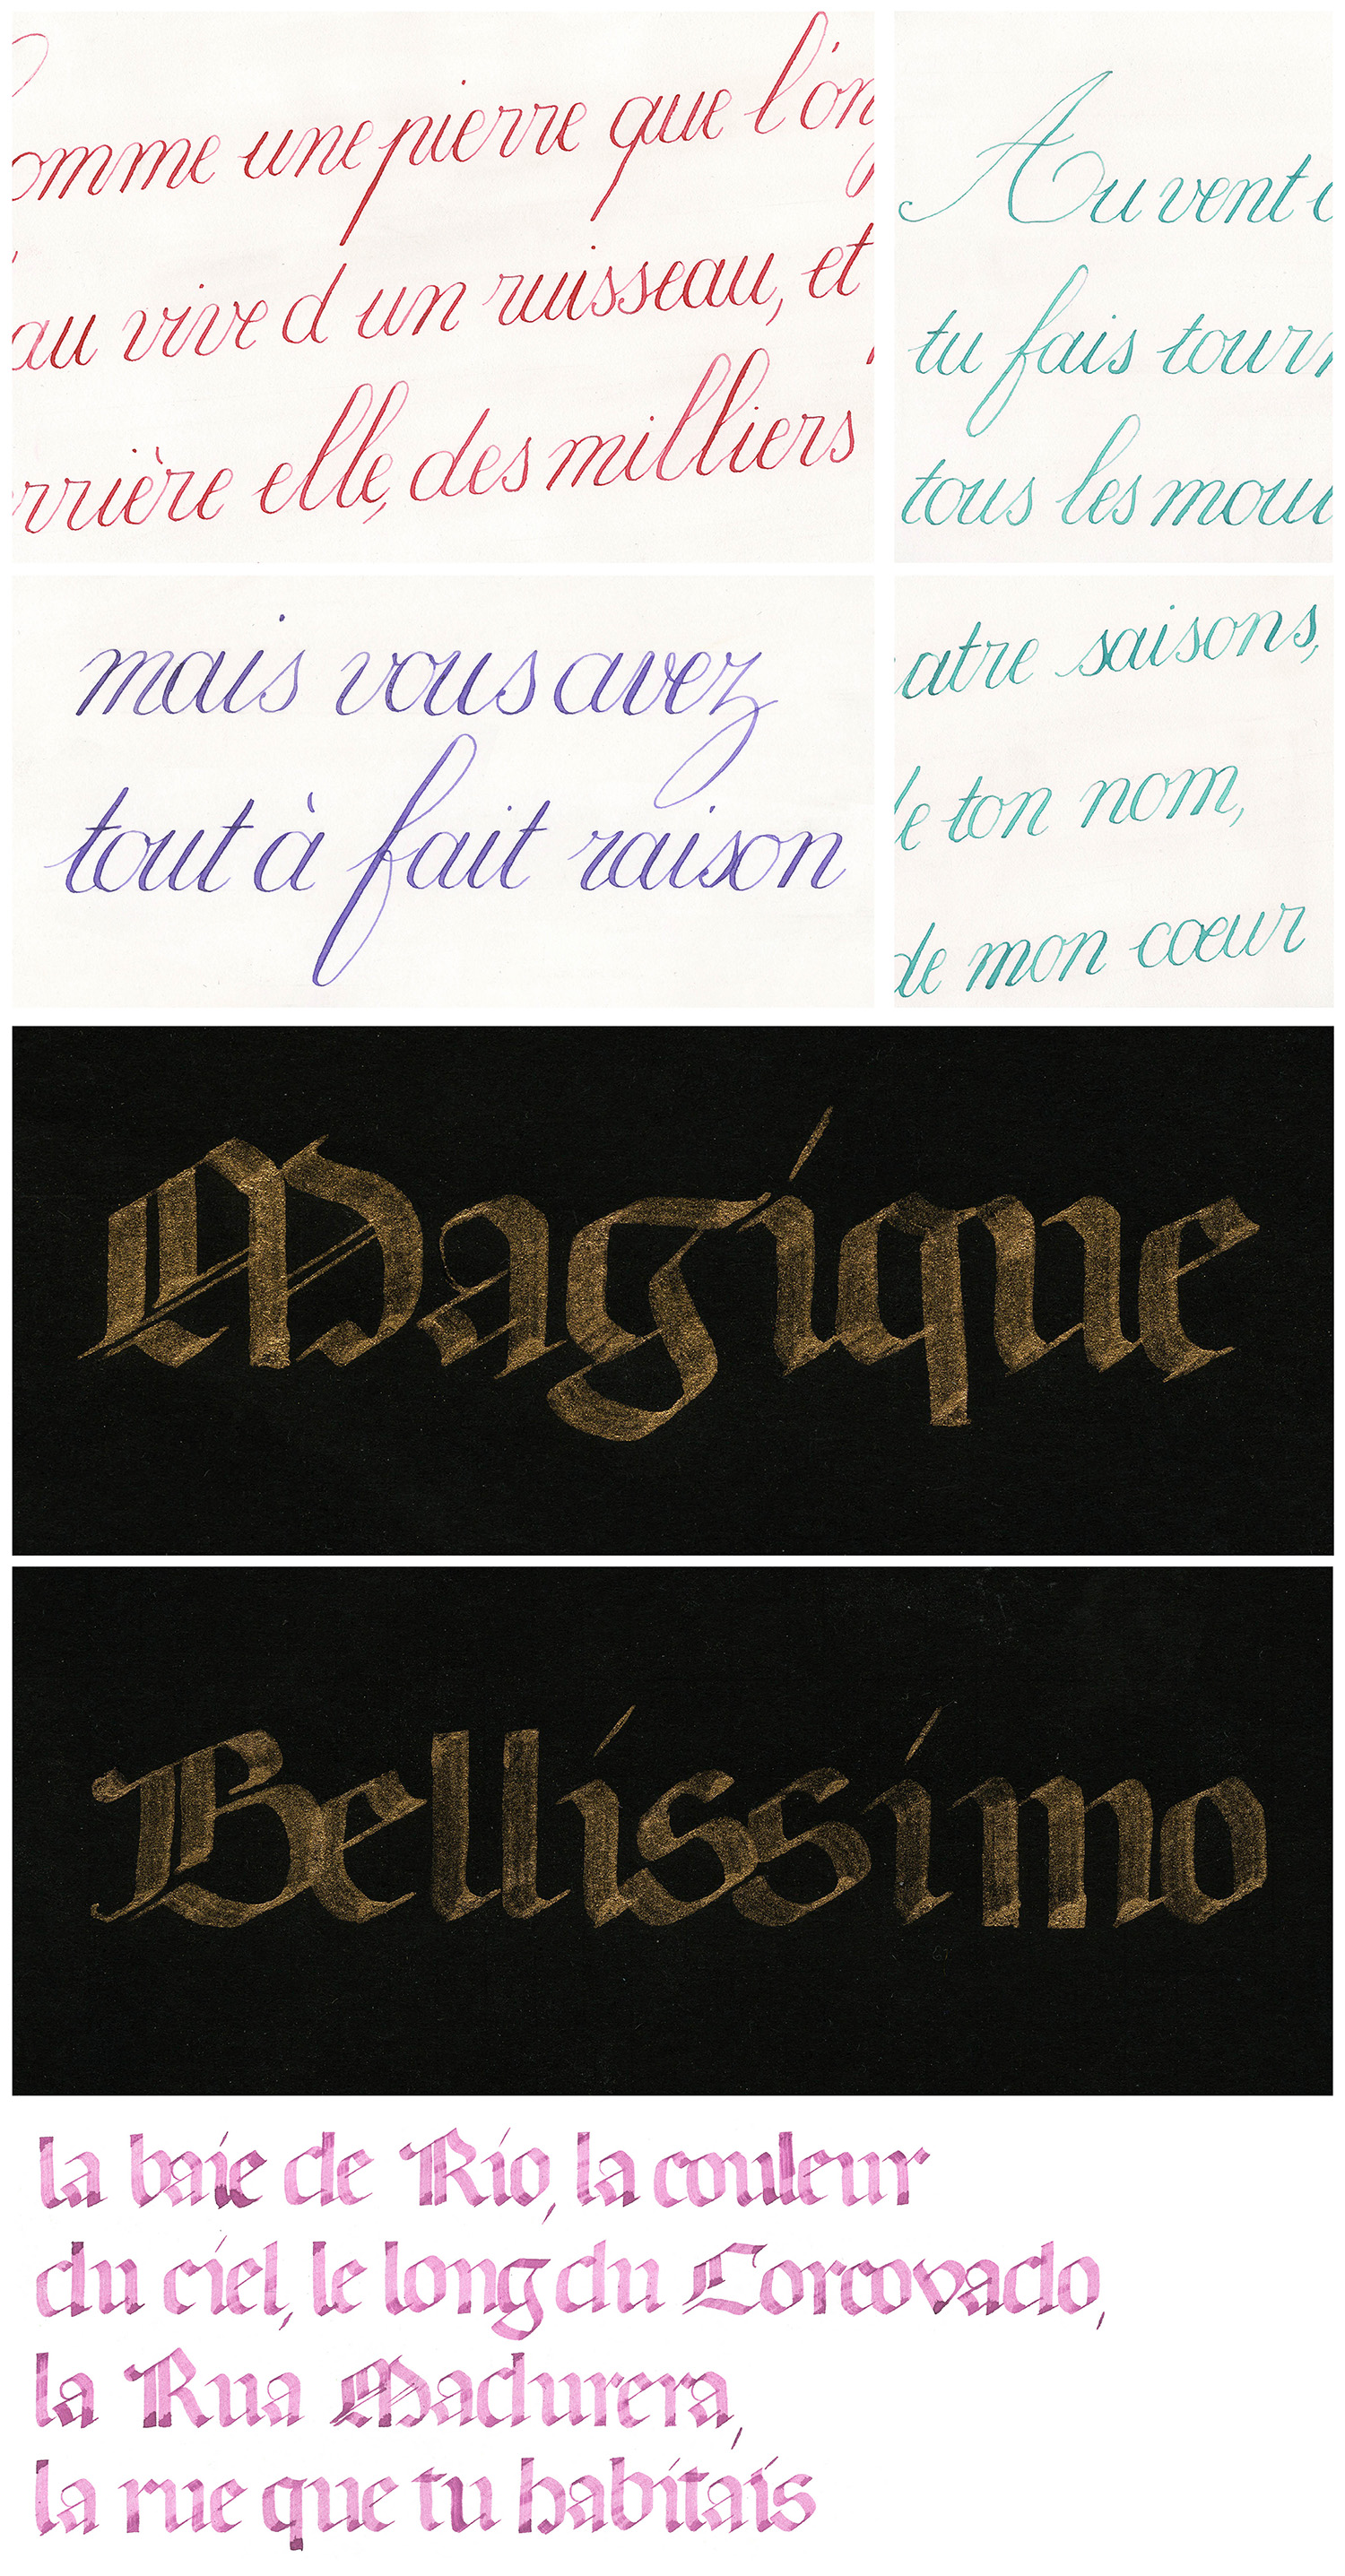 omme une pierre que l'on
au vive d un ruisseau, et
rrière elle, des milliers
Au vent
tu fais tourn
tous les mou
mais vous avez
tout à fait raison
atre saisons,
de ton nom,
de mon cœur
Magique
Bellissimo
la baie de Rio, la couleur
du ciel, le long du Corcovado,
la Rua Madurera,
la rue que tu habitais